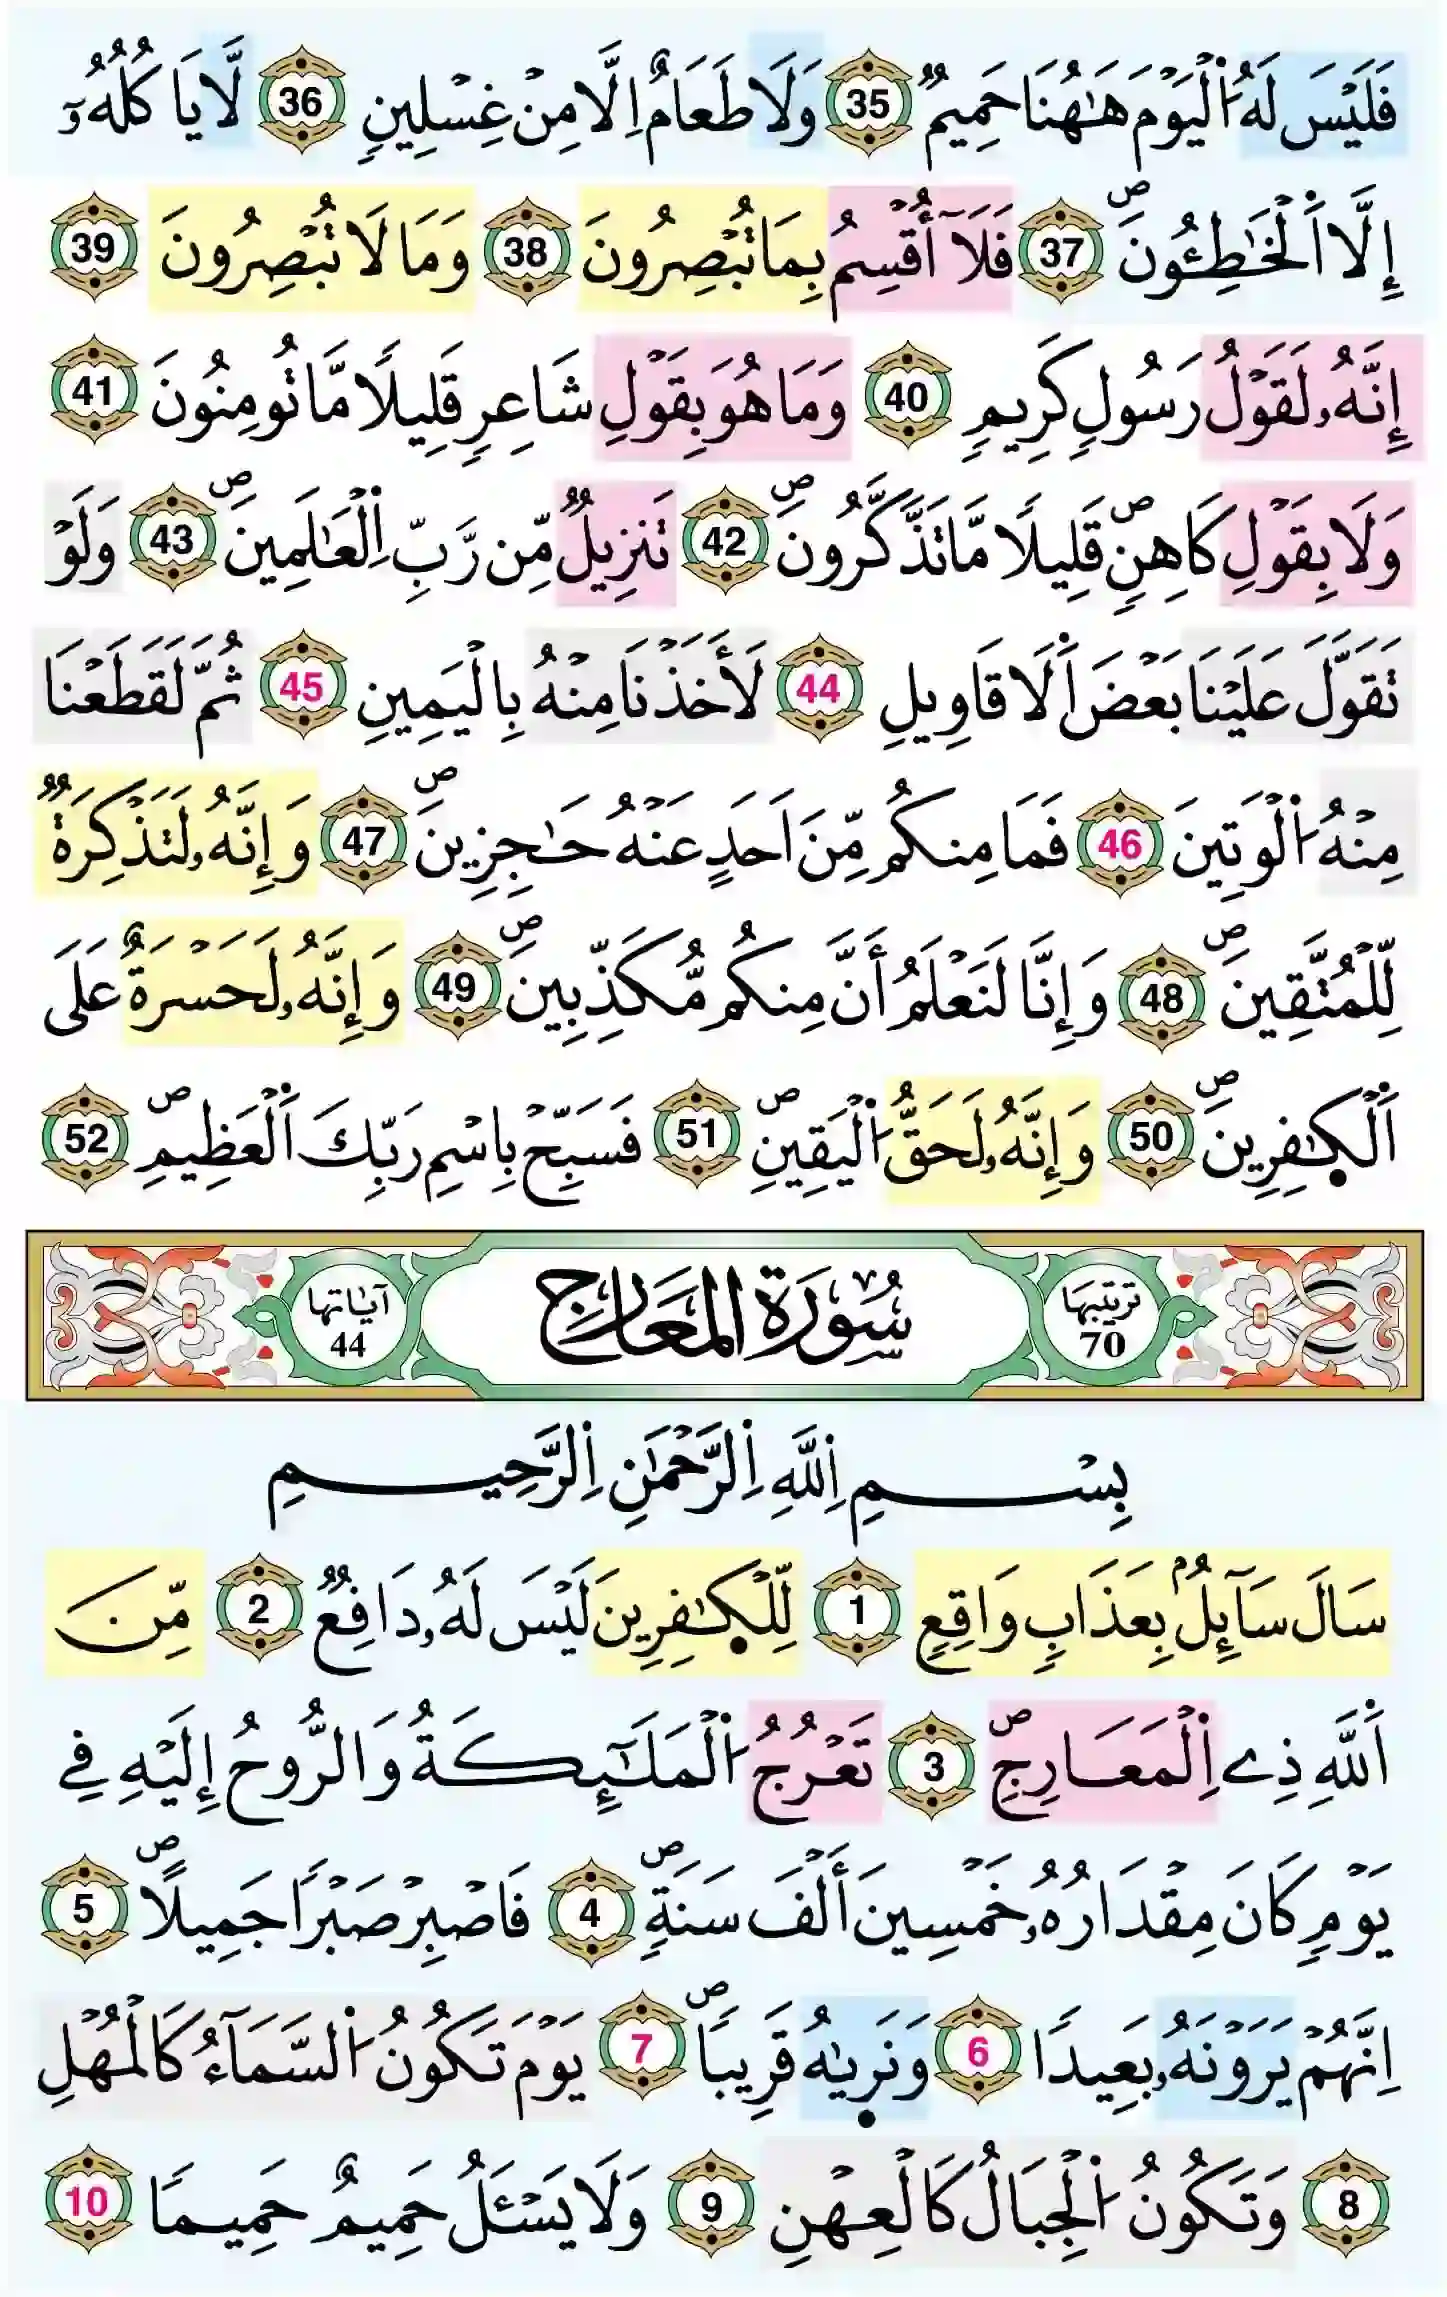 فَلَيْسَ لَهُ اُ۬لْيَوْمَ هَٰهُنَا حَمِيمٞ 35 وَلَا طَعَامٌ اِلَّا مِنْ غِسْلِينٖ 36 لَّا يَاكُلُهُۥٓ
إِلَّا اَ۬لْخَٰطِـُٔونَۖ 37 فَلَآ أُقْسِمُ بِمَا تُبْصِرُونَ 38 وَمَا لَا تُبْصِرُونَ 39
إِنَّهُۥ لَقَوْلُ رَسُولٖ كَرِيمٖ 40 وَمَا هُوَ بِقَوْلِ شَاعِرٖ قَلِيلاٗ مَّا تُومِنُونَ 41
وَلَا بِقَوْلِ كَاهِنٖۖ قَلِيلاٗ مَّا تَذَّكَّرُونَۖ 42 تَنزِيلٞ مِّن رَّبِّ اِ۬لْعَٰلَمِينَۖ 43 وَلَوْ
تَقَوَّلَ عَلَيْنَا بَعْضَ اَ۬لَاقَاوِيلِ 44 لَأَخَذْنَا مِنْهُ بِالْيَمِينِ 45 ثُمَّ لَقَطَعْنَا
مِنْهُ اُ۬لْوَتِينَ 46 فَمَا مِنكُم مِّنَ اَحَدٍ عَنْهُ حَٰجِزِينَۖ 47 وَإِنَّهُۥ لَتَذْكِرَةٞ
لِّلْمُتَّقِينَۖ 48 وَإِنَّا لَنَعْلَمُ أَنَّ مِنكُم مُّكَذِّبِينَۖ 49 وَإِنَّهُۥ لَحَسْرَةٌ عَلَى
اَ۬لْكٰ۪فِرِينَۖ 50 وَإِنَّهُۥ لَحَقُّ اُ۬لْيَقِينِۖ 51 فَسَبِّحْ بِاسْمِ رَبِّكَ اَ۬لْعَظِيمِۖ 52
تريتيبها 70 سُورَةُ المَعَارِجِ آيَاتها 44
بِسْمِ اِ۬للَّهِ اِ۬لرَّحْمَٰنِ اِ۬لرَّحِيمِ
سَالَ سَآئِلُۢ بِعَذَابٖ وَاقِعٖ 1 لِّلْكٰ۪فِرِينَ لَيْسَ لَهُۥ دَافِعٞ 2 مِّنَ
اَ۬للَّهِ ذِے اِ۬لْمَعَارِجِۖ 3 تَعْرُجُ اُ۬لْمَلَٰٓئِكَةُ وَالرُّوحُ إِلَيْهِ فِے
يَوْمٖ كَانَ مِقْدَارُهُۥ خَمْسِينَ أَلْفَ سَنَةٖۖ 4 فَاصْبِرْ صَبْراٗ جَمِيلاًۖ 5
اِنَّهُمْ يَرَوْنَهُۥ بَعِيداٗ 6 وَنَر۪يٰهُ قَرِيباٗۖ 7 يَوْمَ تَكُونُ اُ۬لسَّمَآءُ كَالْمُهْلِ
8 وَتَكُونُ اُ۬لْجِبَالُ كَالْعِهْنِ 9 وَلَا يَسْـَٔلُ حَمِيمٌ حَمِيماٗ 10